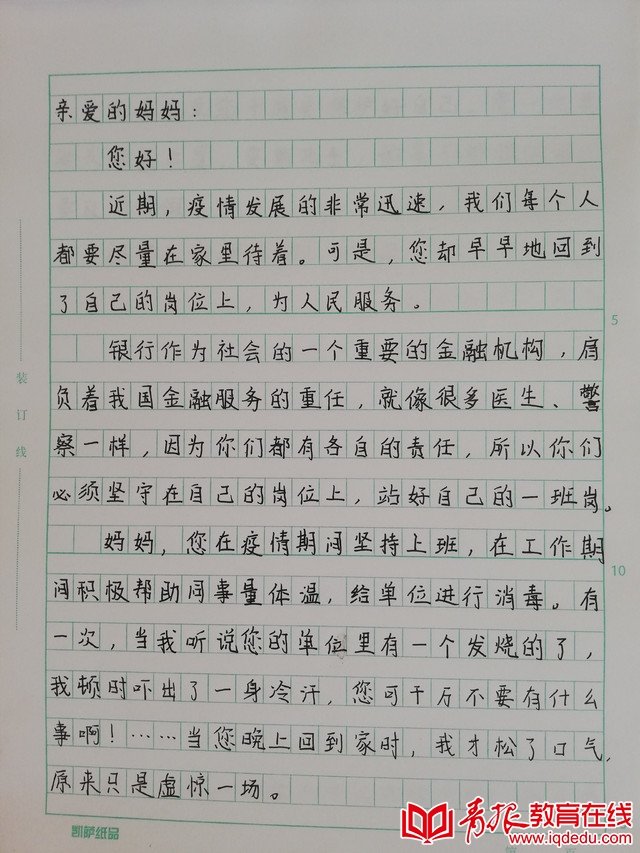 亲爱的妈妈：
您好！
近期，疫情发展的非常迅速，我们每个人
都要尽量在家里待着。可是，您却早早地回到
了自己的岗位上，为人民服务。
5
银行作为社会的一个重要的金融机构，肩
负着我国金融服务的重任，就像很多医生、警
察一样，因为你们都有各自的责任，所以你们
必须坚守在自己的岗位上，站好自己的一班岗。
妈妈，您在疫情期间坚持上班，在工作期
10
间积极帮助同事量体温，给单位进行消毒。有
一次，当我听说您的单位里有一个发烧的了，
我顿时吓出了一身冷汗，您可千万不要有什么
事啊！……当您晚上回到家时，我才松了口气，
原来只是虚惊一场。
装订线
凯萨纸品
青报教育在线
www.iqdedu.com